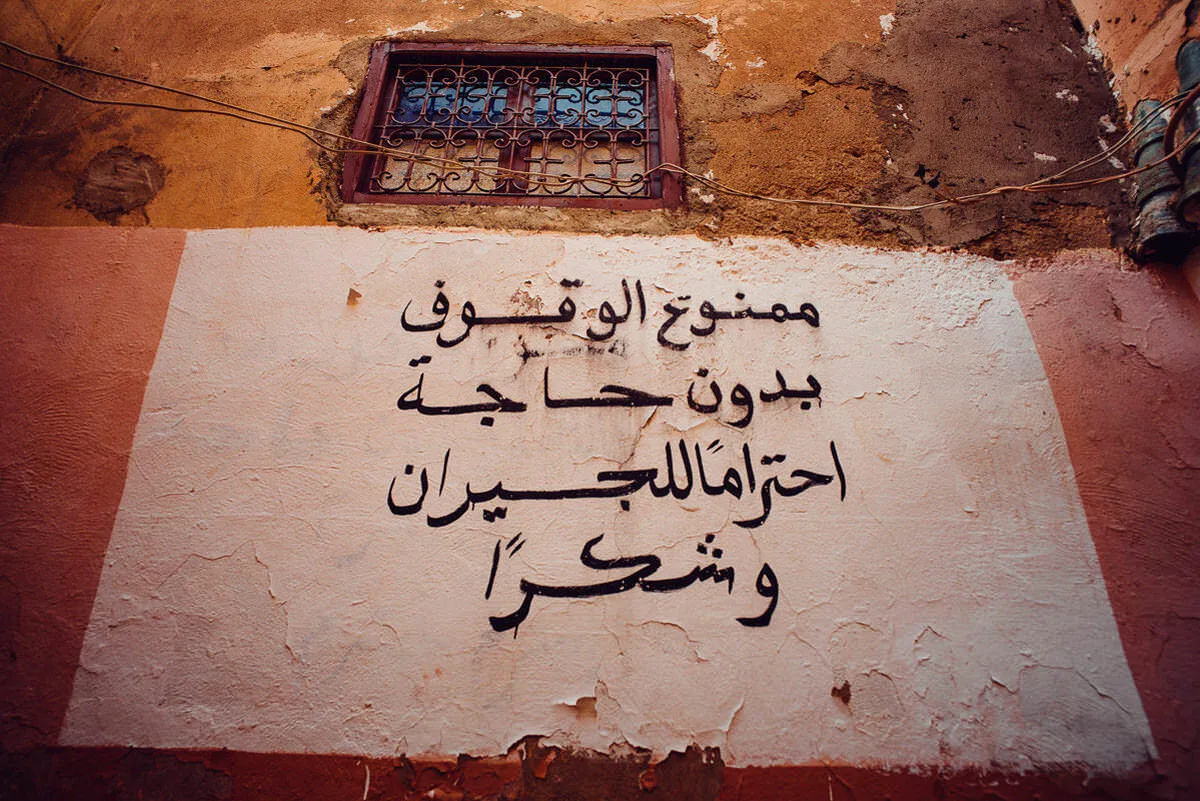 ممنوع الوقوف
بدون حاجة
احترامًا للجيران
وشكرًا